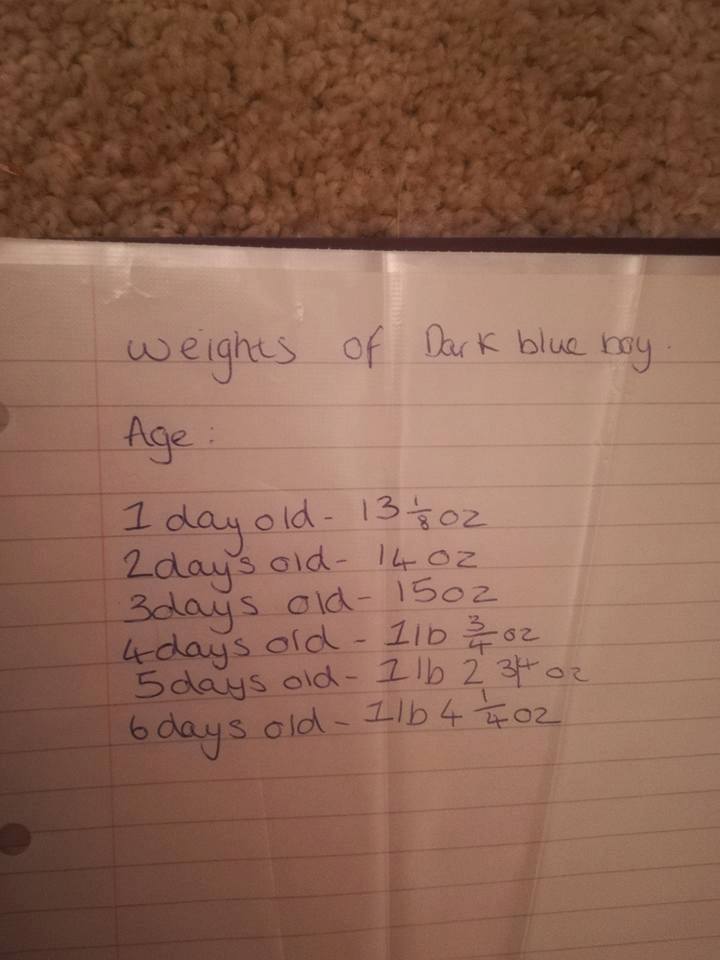 weights of Dark blue boy.
Age:
1 day old - 13 1/8 oz
2 days old - 14 oz
3 days old - 15 oz
4 days old - 1 lb 3/4 oz
5 days old - 1 lb 2 3/4 oz
6 days old - 1 lb 4 1/4 oz